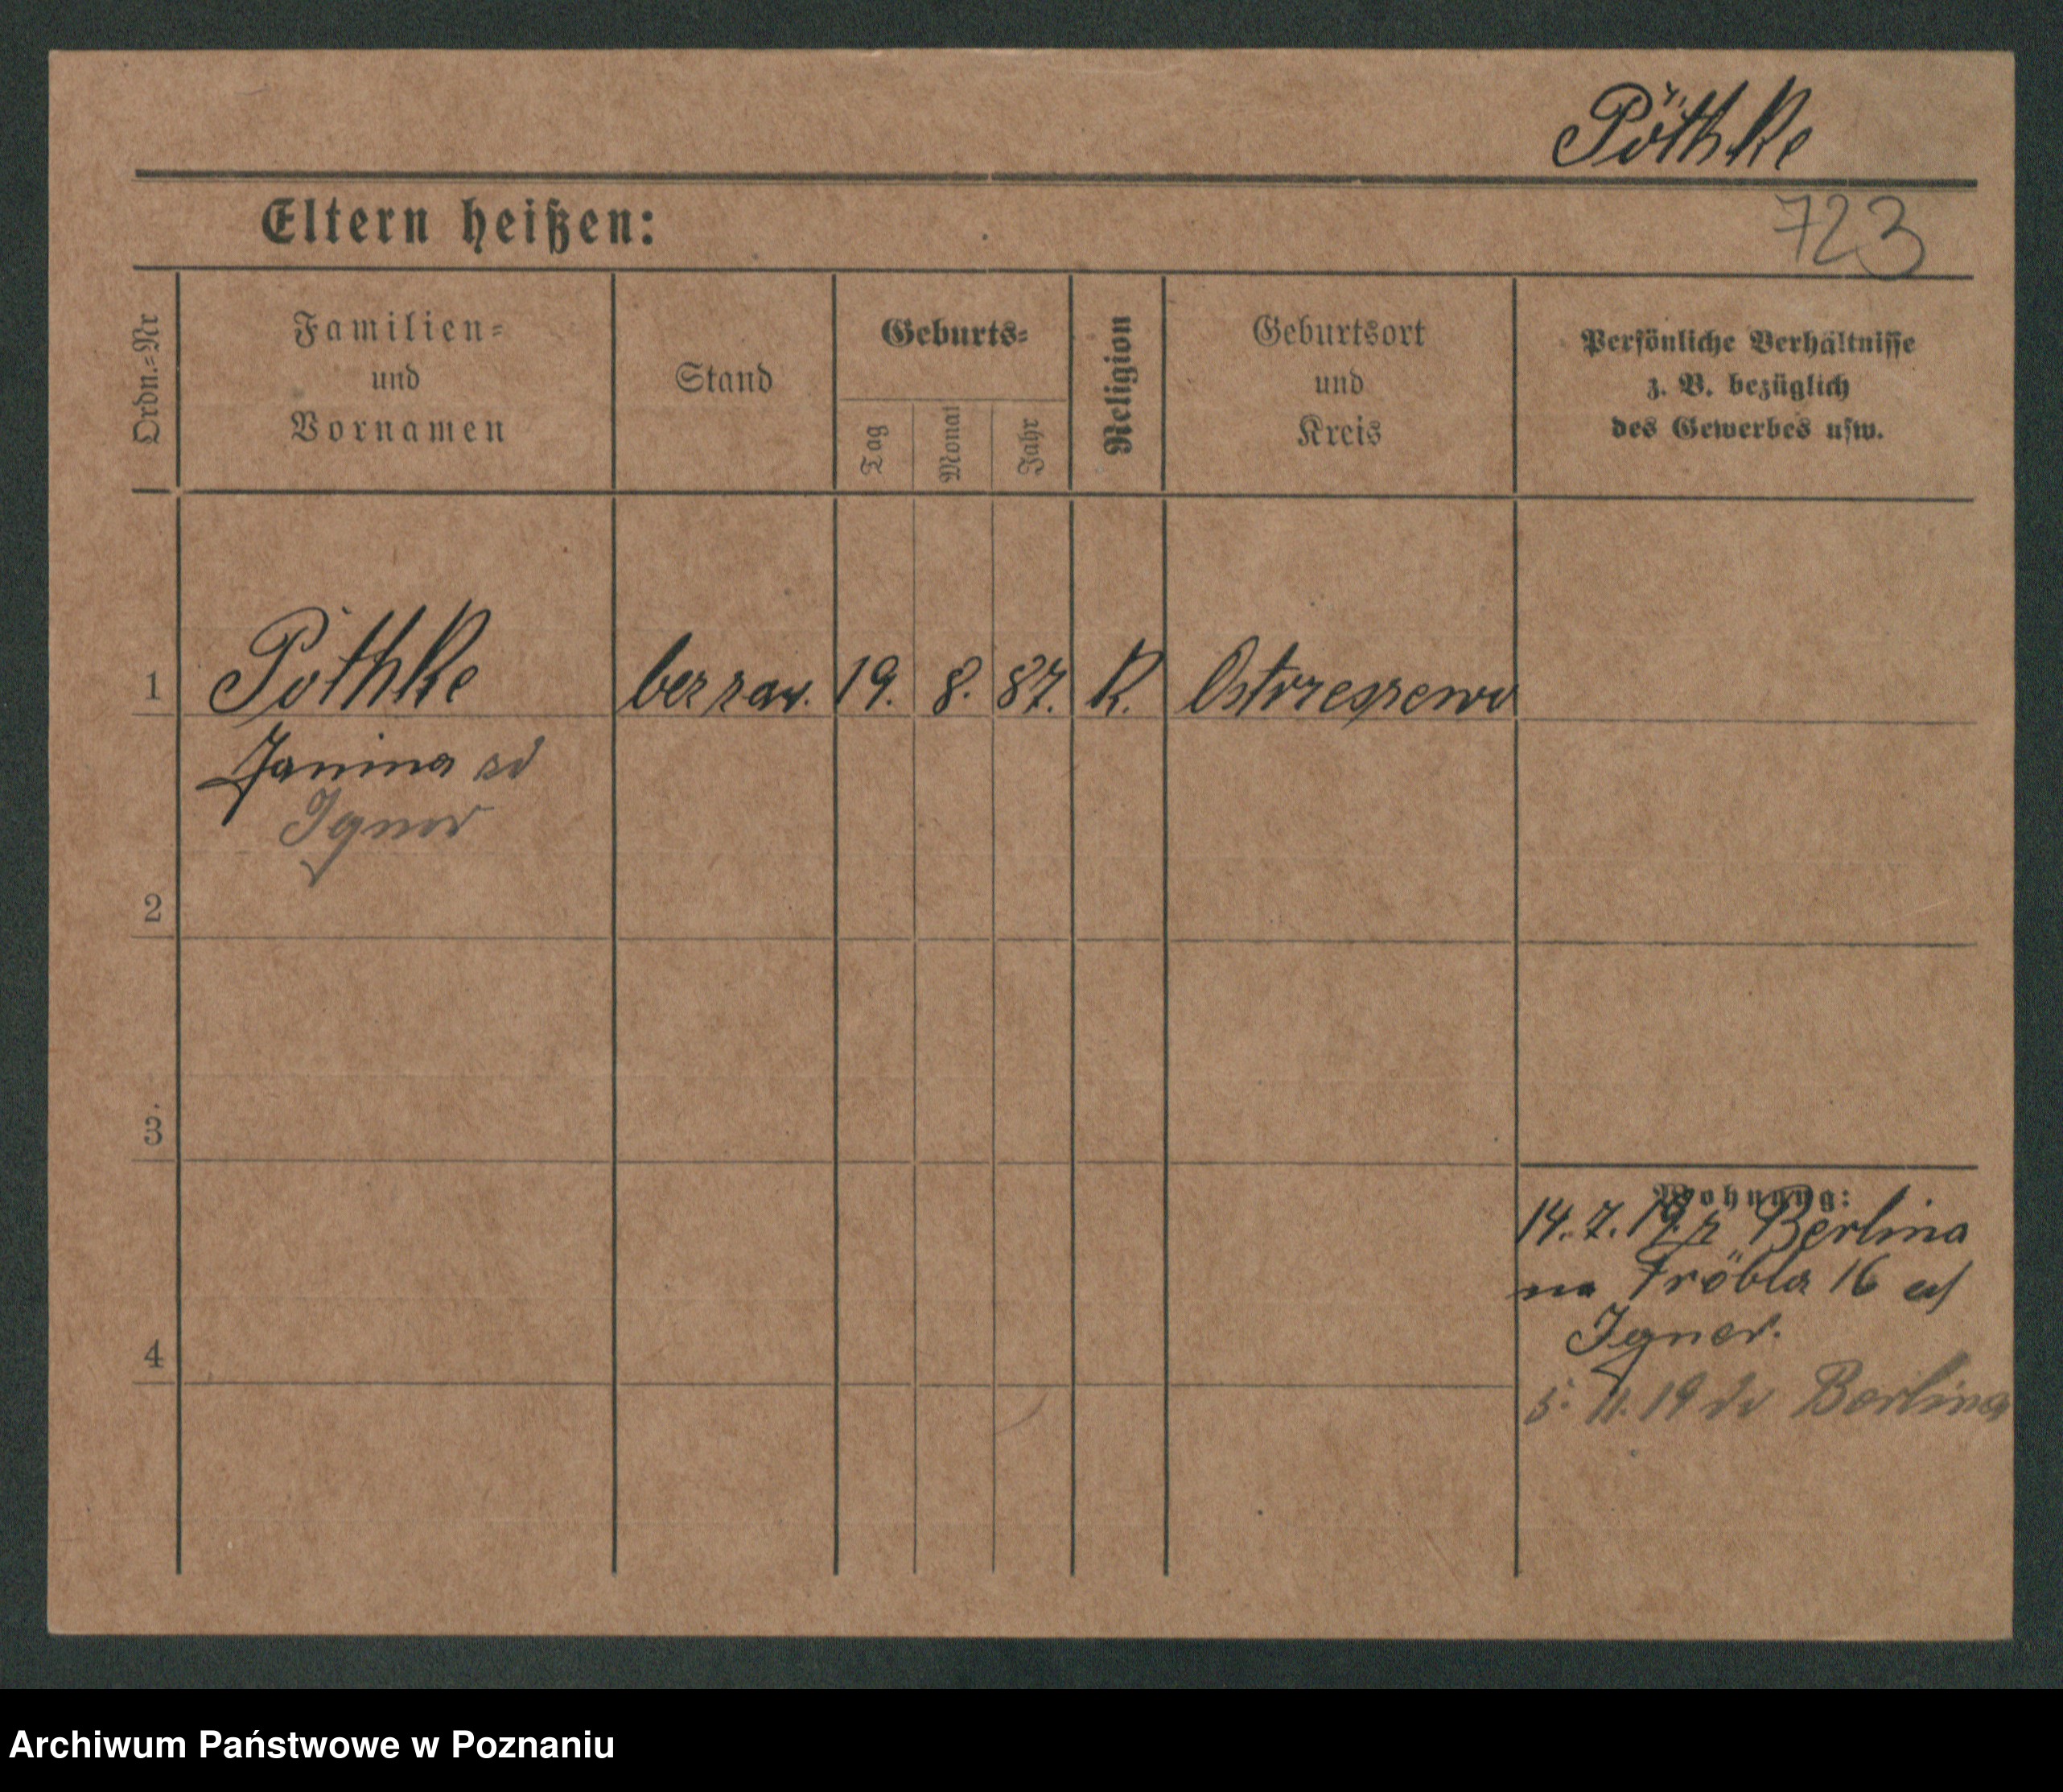 Pöthke
Eltern heißen:
723
Ordn.=Nr
Familien=
und
Vornamen
Stand
Geburts=
Tag
Monat
Jahr
Religion
Geburtsort
und
Kreis
Persönliche Verhältnisse
z. B. bezüglich
des Gewerbes usw.
1 Pöthke bez zaw. 19. 8. 87. R.
Janina
2
3
4
Wohnung:
14. 7. 19. z Berlina
na Fröbla 16
Igner.
5. 11. 19 do Berlina
Archiwum Państwowe w Poznaniu